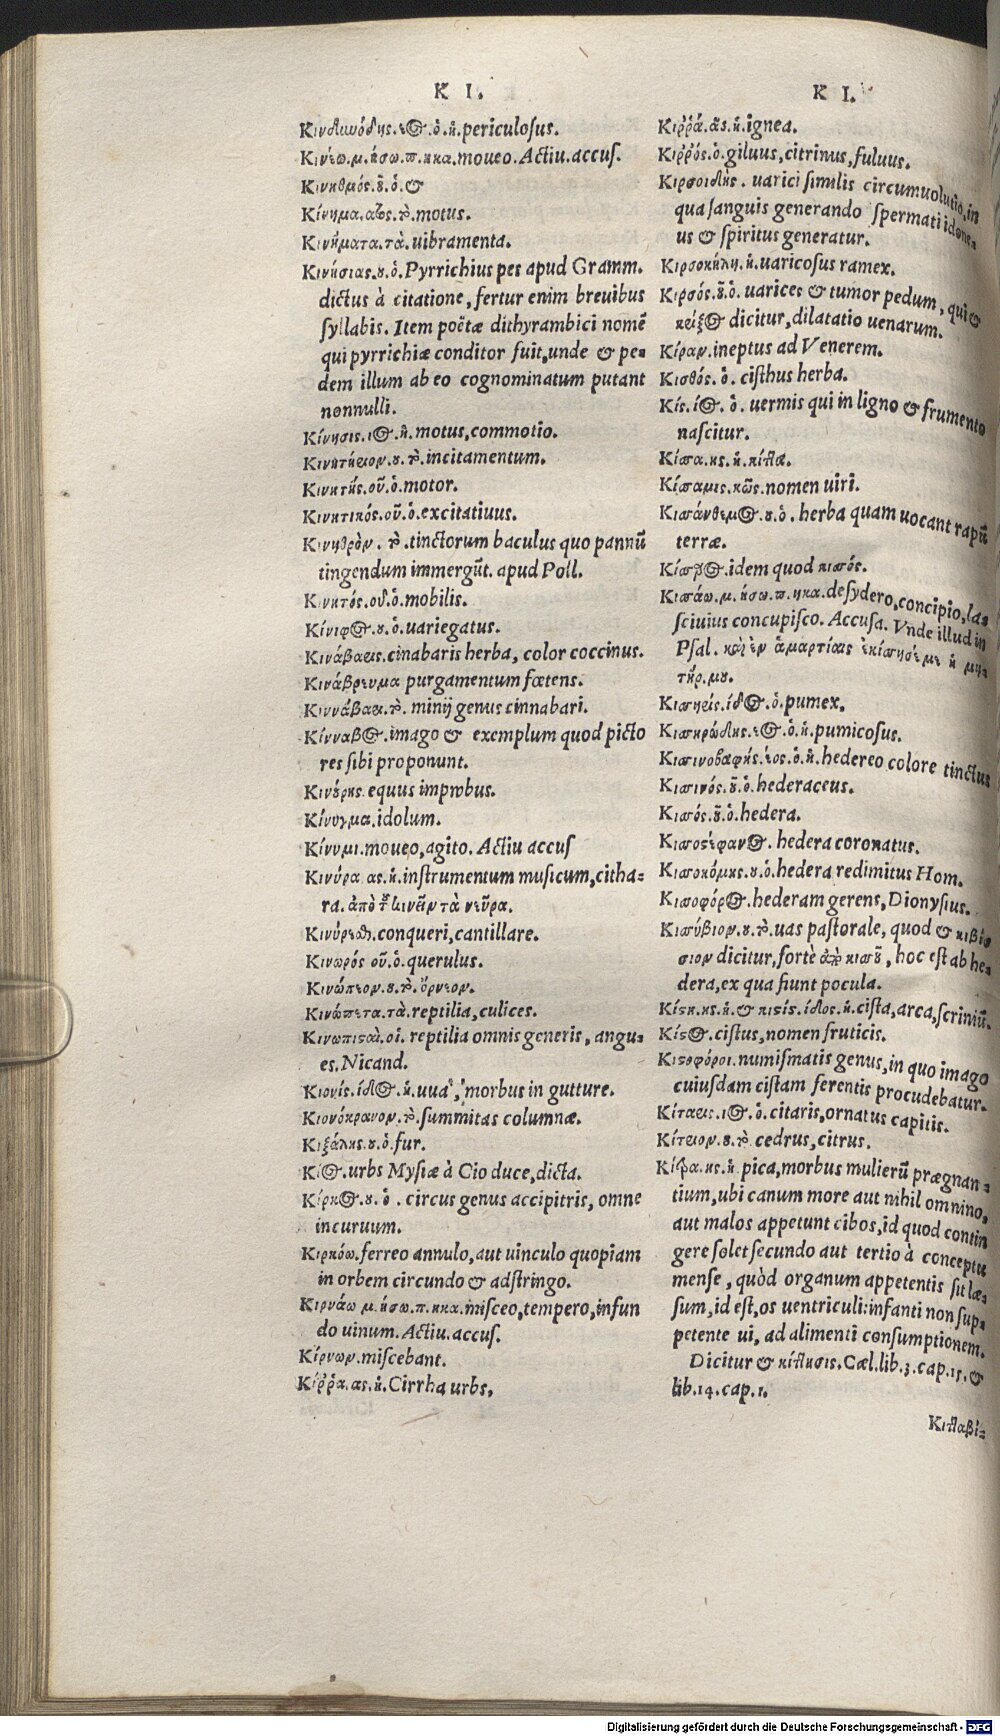 K I.
Κινδιωώδης.εος.ὁ.ἡ.periculoſus.
Κινέω.μ.ήσω.π.ηκα.moueo.Actiu.accuſ.
Κινηθμός.οῦ.ὁ.&
Κίνημα.ατος.τὸ.motus.
Κινήματα.τὰ.uibramenta.
Κινησίας.ου.ὁ.Pyrrichius pes apud Gramm.
dictus à citatione, fertur enim breuibus
ſyllabis. Item poëtæ dithyrambici nomẽ
qui pyrrichiæ conditor fuit, unde & pe=
dem illum ab eo cognominatum putant
nonnulli.
Κίνησις.ιος.ἡ.motus, commotio.
Κινητήριον.ου.τὸ.incitamentum.
Κινητής.οῦ.ὁ.motor.
Κινητικός.οῦ.ὁ.excitatiuus.
Κινηθρὸν.τὸ.tinctorum baculus quo pannũ
tingendum immergũt. apud Poll.
Κινητός.οῦ.ὁ.mobilis.
Κίνιφος.ου.ὁ.uariegatus.
Κινάβαρις.cinabaris herba, color coccinus.
Κινάβρευμα purgamentum fœtens.
Κιννάβαρι.τὸ.minij genus cinnabari.
Κίνναβος.imago & exemplum quod picto
res ſibi proponunt.
Κινούρης equus improbus.
Κίνυγμα.idolum.
Κίνυμι.moueo, agito. Actiu accuſ
Κινύρα ας.ἡ.inſtrumentum muſicum, citha=
ra. ἀπὸ τοῦ κινεῖν τὰ νεῦρα.
Κινύρεσθαι.conqueri, cantillare.
Κινυρός οῦ.ὁ.querulus.
Κινώπιον.ου.τὸ.ὄρνεον.
Κινώπετα.τὰ.reptilia, culices.
Κινωπισαὶ.οἱ.reptilia omnis generis, angu=
es. Nicand.
Κιονίς.ίδος.ἡ.uua, morbus in gutture.
Κιονόκρανον.τὸ.ſummitas columnæ.
Κιξάλης.ου.ὁ.fur.
Κίος.urbs Myſiæ à Cio duce, dicta.
Κίρκος.ου.ὁ. circus genus accipitris, omne
incuruum.
Κιρκόω.ferreo annulo, aut uinculo quopiam
in orbem circundo & adſtringo.
Κιρνάω μ.ήσω.π.ηκα.miſceo, tempero, infun
do uinum. Actiu. accuſ.
Κίρνων.miſcebant.
Κίῤῥα.ας.ἡ.Cirrha urbs.
K I.
Κιῤῥά.ᾶς.ἡ.ignea.
Κιῤῥός.ὁ.giluus, citrinus, fuluus.
Κιρσοιδης. uarici ſimilis circumuolutio, in
qua ſanguis generando ſpermati idone=
us & ſpiritus generatur.
Κιρσοκήλη.ἡ.uaricoſus ramex.
Κιρσός.οῦ.ὁ. uarices & tumor pedum, qui &
κριξος dicitur, dilatatio uenarum.
Κίραν.ineptus ad Venerem.
Κισθός.ὁ. ciſthus herba.
Κίς.ίος.ὁ. uermis qui in ligno & frumento
naſcitur.
Κίσσα.ης.ἡ.κίττα.
Κίσσαμις.κῶς.nomen uiri.
Κισσάνθεμος.ου.ὁ. herba quam uocant rapũ
terræ.
Κίσσαρος.idem quod κισσός.
Κισσάω.μ.ήσω.π.ηκα.deſydero, concipio, la=
ſciuius concupiſco. Accuſa. Vnde illud in
Pſal. καὶ ἐν ἁμαρτίαις ἐκίσσησέ με ἡ μή=
τηρ.μου.
Κισσηρίς.ίδος.ὁ.pumex.
Κισσηρώδης.εος.ὁ.ἡ.pumicoſus.
Κισσινοβαφής.έος.ὁ.ἡ.hedereo colore tinctus
Κισσινός.οῦ.ὁ.hederaceus.
Κισσός.οῦ.ὁ.hedera.
Κισσοστέφανος. hedera coronatus.
Κισσοκόμης.ου.ὁ.hedera redimitus Hom.
Κισσοφόρος.hederam gerens, Dionyſius.
Κισσύβιον.ου.τὸ.uas paſtorale, quod & κιβίσ
σιον dicitur, fortè ἀπὸ κισσοῦ, hoc eſt ab he
dera, ex qua fiunt pocula.
Κίστη.ης.ἡ.& κιστίς.ίδος.ἡ.ciſta, arca, ſcriniũ.
Κίστος.ciſtus, nomen fruticis.
Κιστοφόροι.numiſmatis genus, in quo imago
cuiuſdam ciſtam ferentis procudebatur.
Κίταρις.ιος.ὁ.citaris, ornatus capitis.
Κίτριον.ου.τὸ.cedrus, citrus.
Κίττα.ης.ἡ.pica, morbus mulierũ prægnan=
tium, ubi canum more aut nihil omnino,
aut malos appetunt cibos, id quod contin
gere ſolet ſecundo aut tertio à conceptu
menſe, quòd organum appetentis ſit læ=
ſum, id eſt, os uentriculi: infanti non ſup=
petente ui, ad alimenti conſumptionem.
Dicitur & κίττησις. Cæl. lib. 3. cap. 15. &
lib. 14. cap. 1.
Κιτταβί=
Digitalisierung gefördert durch die Deutsche Forschungsgemeinschaft - DFG